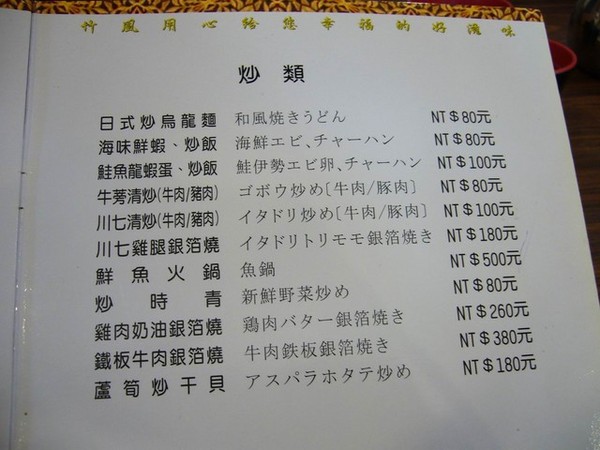 竹風用心給您幸福的好滋味
炒類
日式炒烏龍麵 和風焼きうどん NT＄80元
海味鮮蝦、炒飯 海鮮エビ、チャーハン NT＄80元
鮭魚龍蝦蛋、炒飯 鮭伊勢エビ卵、チャーハン NT＄100元
牛蒡清炒(牛肉/豬肉) ゴボウ炒め〔牛肉/豚肉〕 NT＄80元
川七清炒(牛肉/豬肉) イタドリ炒め〔牛肉/豚肉〕 NT＄100元
川七雞腿銀箔燒 イタドリトリモモ銀箔焼き NT＄180元
鮮魚火鍋 魚鍋 NT＄500元
炒時青 新鮮野菜炒め NT＄80元
雞肉奶油銀箔燒 鶏肉バター銀箔焼き NT＄260元
鐵板牛肉銀箔燒 牛肉鉄板銀箔焼き NT＄380元
蘆筍炒干貝 アスパラホタテ炒め NT＄180元